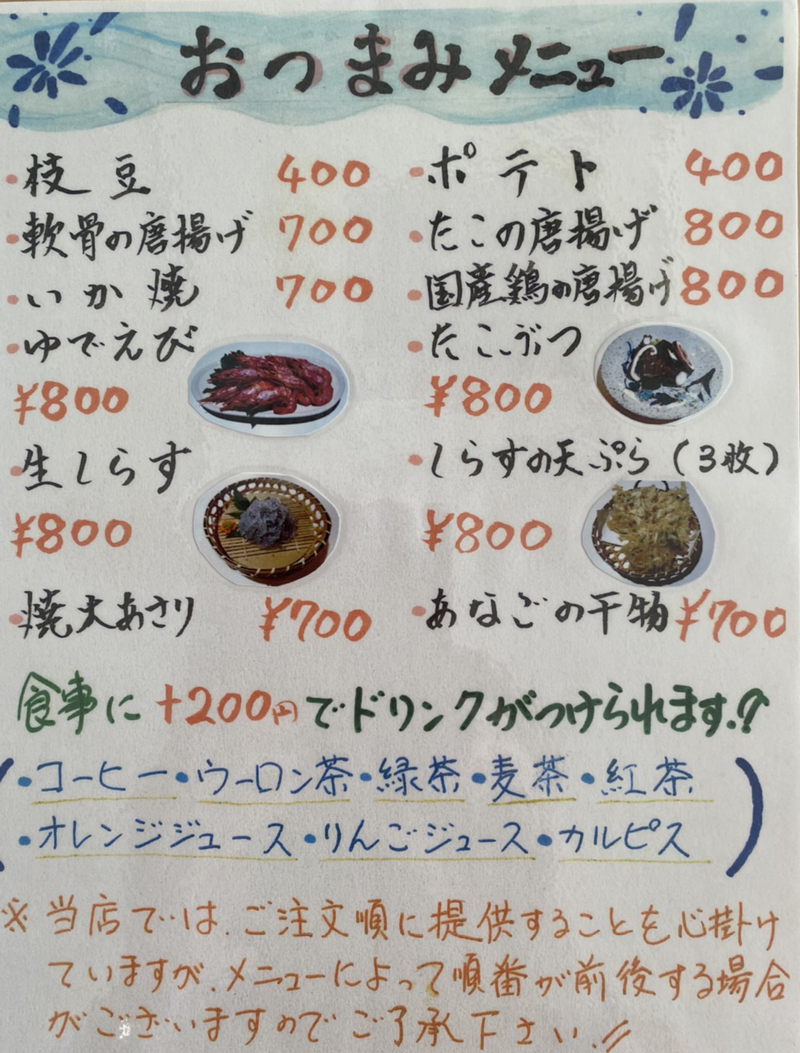 おつまみメニュー
・枝豆 400 ・ポテト 400
・軟骨の唐揚げ 700 ・たこの唐揚げ 800
・いか焼 700 ・国産鶏の唐揚げ 800
・ゆでえび ・たこぶつ
¥800 ¥800
・生しらす ・しらすの天ぷら(3枚)
¥800 ¥800
・焼大あさり ¥700 ・あなごの干物 ¥700
食事に+200円でドリンクがつけられます!!
(・コーヒー・ウーロン茶・緑茶・麦茶・紅茶
・オレンジジュース・りんごジュース・カルピス)
※当店では、ご注文順に提供することを心掛け
ていますが、メニューによって順番が前後する場合
がございますのでご了承下さい!!